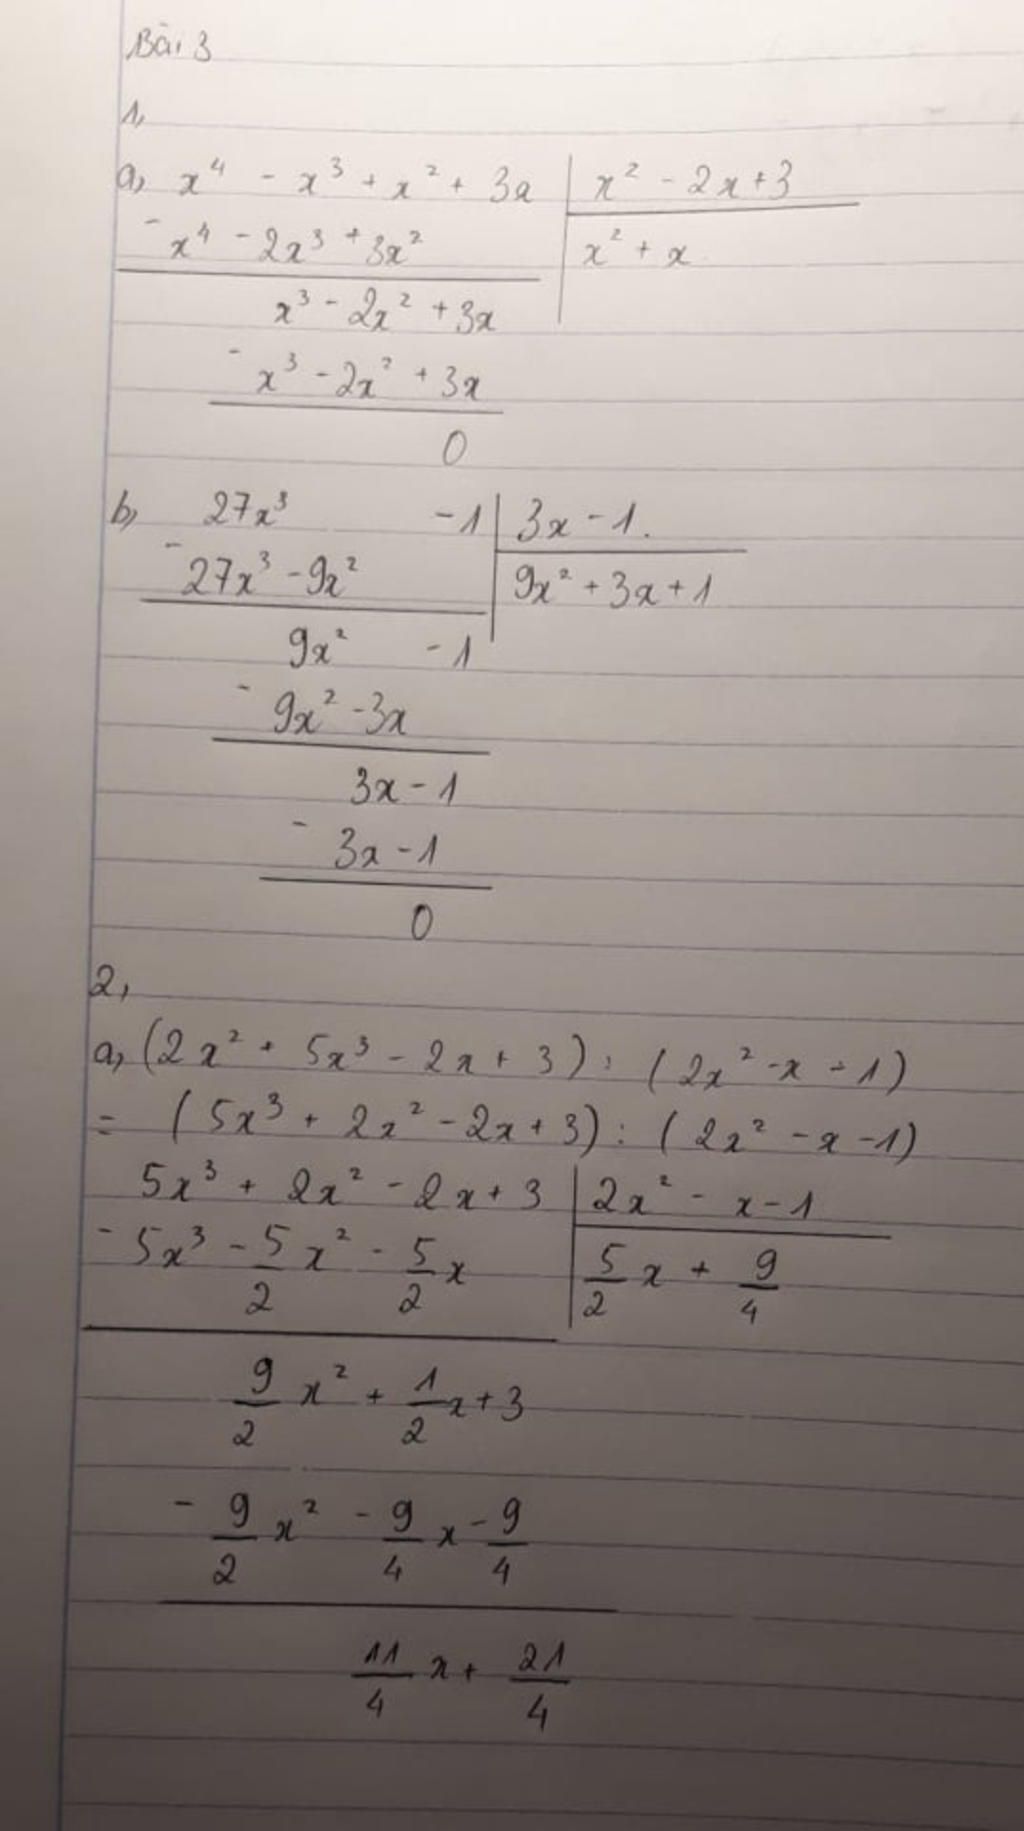 Bài 3
1,
a, x⁴ - x³ + x² + 3x | x² - 2x + 3
- x⁴ - 2x³ + 3x² | x² + x
x³ - 2x² + 3x
- x³ - 2x² + 3x
0
b, 27x³ - 1 | 3x - 1.
- 27x³ - 9x² | 9x² + 3x + 1
9x² - 1
- 9x² - 3x
3x - 1
- 3x - 1
0
2,
a, (2x² + 5x³ - 2x + 3) : (2x² - x - 1)
= (5x³ + 2x² - 2x + 3) : (2x² - x - 1)
5x³ + 2x² - 2x + 3 | 2x² - x - 1
- 5x³ - 5/2 x² - 5/2 x | 5/2 x + 9/4
9/2 x² + 1/2 x + 3
- 9/2 x² - 9/4 x - 9/4
11/4 x + 21/4